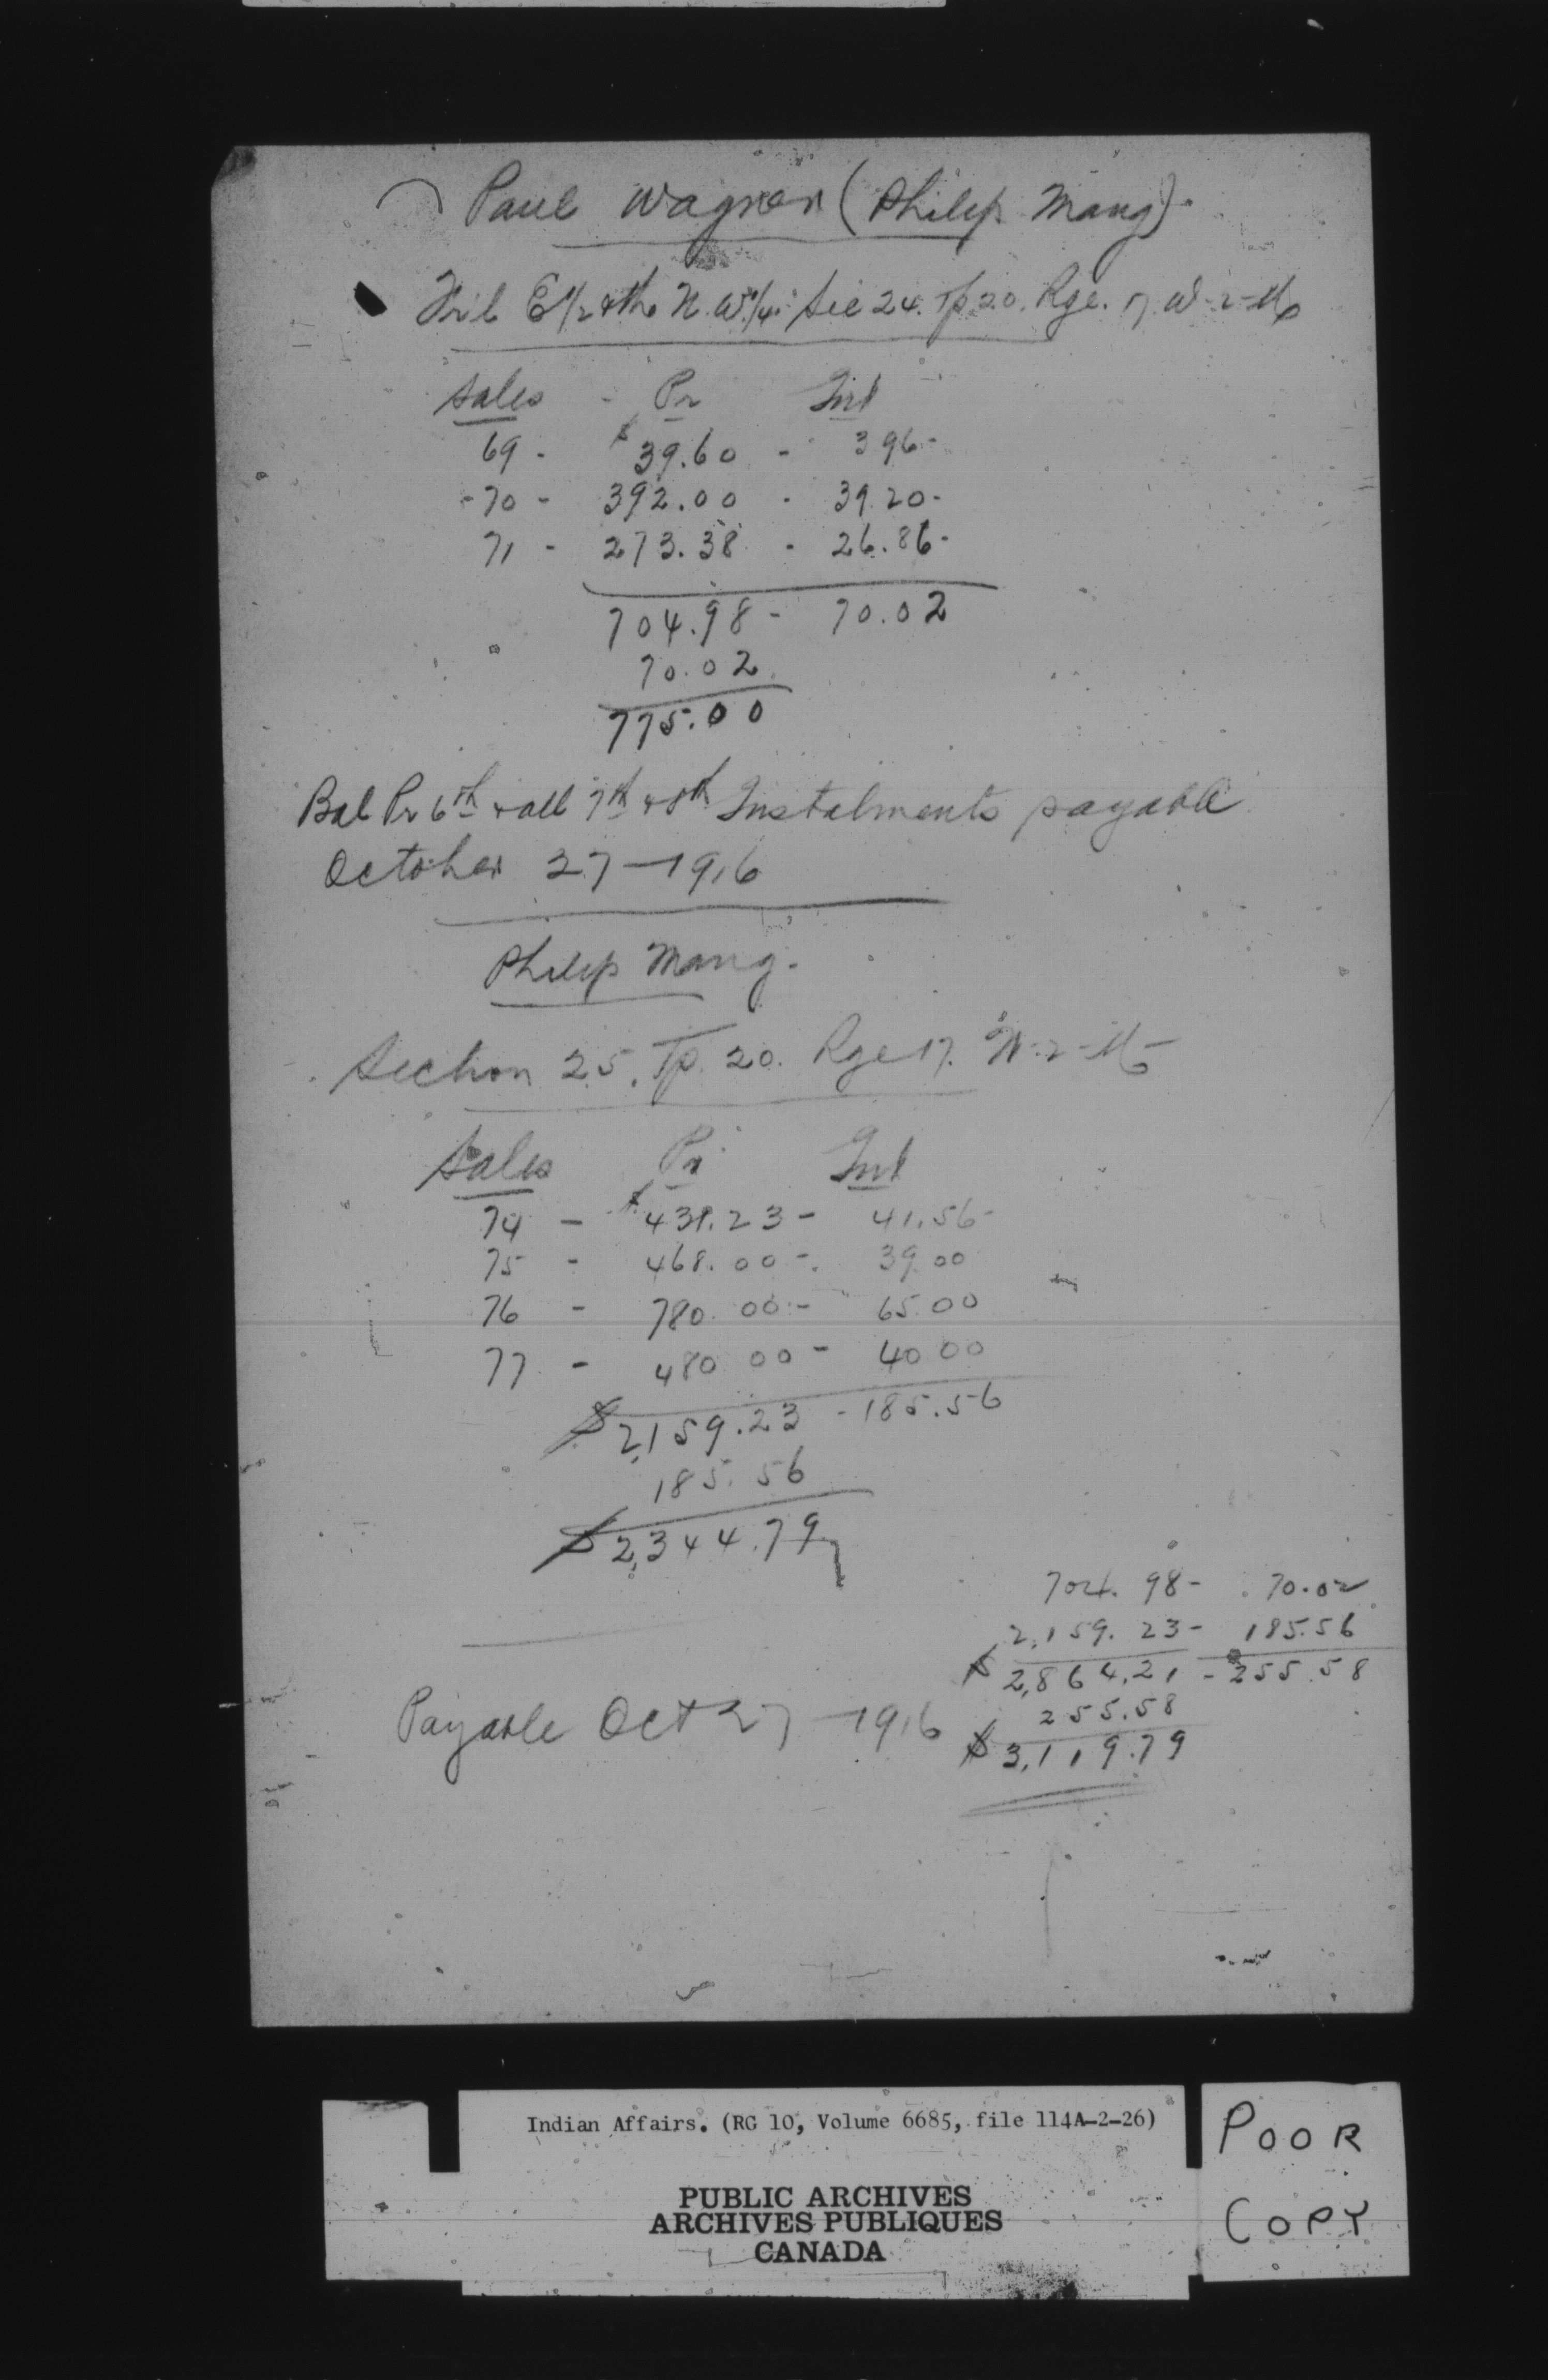 Paul Wagner (Philip Mang).
Frl E 1/2 & the N.W. 1/4. Sec 24. Tp. 20. Rge. 17. W-2-M
Sales - Pr Int
69 - $39.60 - 3 96-
-70 - 392.00 - 39.20-
71 - 273.38 - 26.86-
704.98 - 70.02
70.02
775.00
Bal Pr 6th & all 7th & 8th Instalments payable
October 27-1916
Philip Mang.
Section 25. Tp. 20. Rge 17. W-2-M-
Sales Pr Int
74 - $431.23 - 41.56-
75 - 468.00 - 39.00
76 - 780.00 - 65.00
77 - 480 00 - 40 00
$2,159.23 - 185.56
185.56
$2,344.79
704.98 - 70.02
2,159.23 - 185.56
$2,864.21 - 255.58
255.58
$3,119.79
Payable Oct 27-1916
Indian Affairs. (RG 10, Volume 6685, file 114A-2-26)
PUBLIC ARCHIVES
ARCHIVES PUBLIQUES
CANADA
POOR
COPY